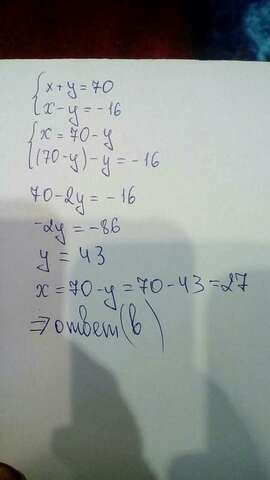 {x+y=70
{x-y=-16
{x=70-y
{(70-y)-y=-16
70-2y=-16
-2y=-86
y=43
x=70-y=70-43=27
⇒ответ(в)